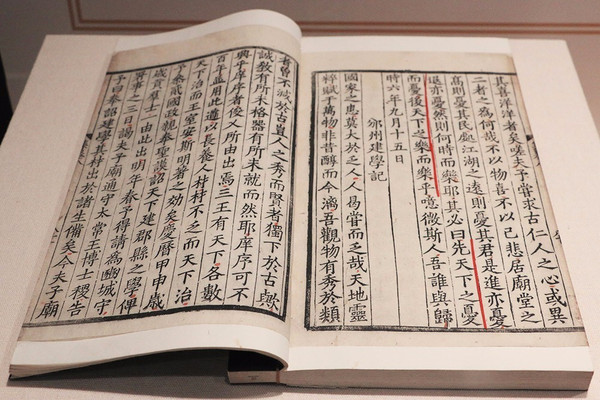 其喜洋洋者矣嗟夫予嘗求古仁人之心或異
二者之為何哉不以物喜不以己悲居廟堂之
高則憂其民處江湖之遠則憂其君是進亦憂
退亦憂然則何時而樂耶其必曰先天下之憂
而憂後天下之樂而樂乎噫微斯人吾誰與歸
時六年九月十五日
邠州建學記
國家之患莫大於乏人人曷嘗而乏哉天地靈
粹賦于萬物非昔醇而今漓吾觀物有秀於類
者曾不減於古豈人之秀而賢者獨下於古歟
誠教有所未格器有所未就而然耶庠序可不
興乎庠序者俊乂所由出焉三王有天下各數
百年並用此道以長養人材材不乏而天下治
天下治而王室安斯明著之效矣慶曆甲申歲
予參貳國政親奉聖謨詔天下建郡縣之學俾
歲貢群士一由此出明年春予得請為豳城守
署事之三日謁夫子廟通守太常王博士稷告
予曰奉詔建學其材出於諸生備矣今夫子廟